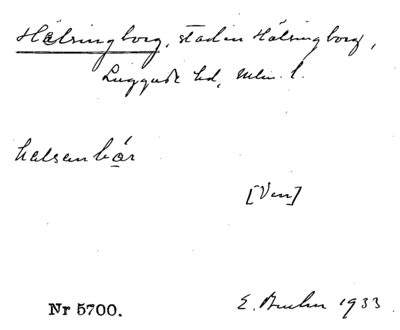 Hälsingborg, staden Hälsingborg,
Luggude hd, Mlm. l.
halsanbår
[Ven]
E. 1933
Nr 5700.